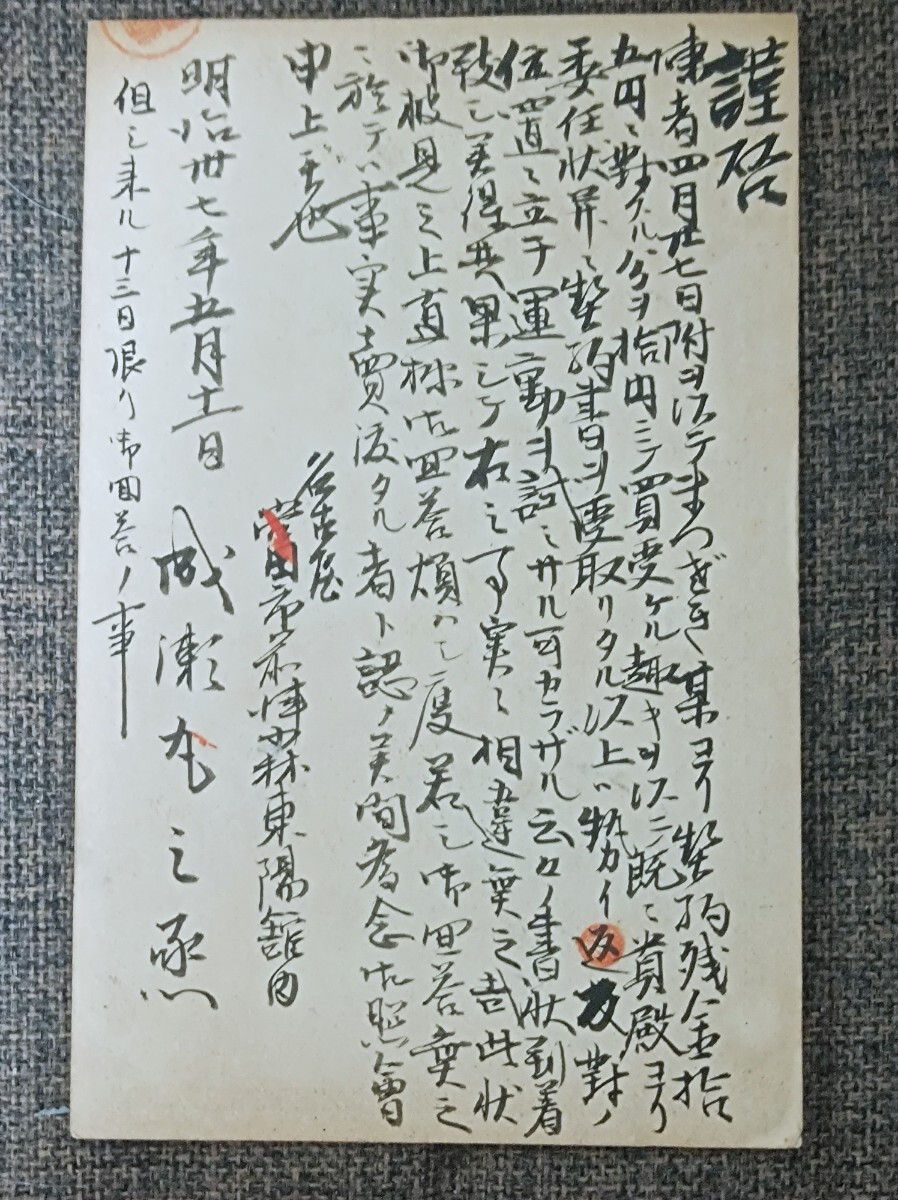 謹啓
陳者四月廿七日附ヲ以テまつざき某ヨリ契約残金拾
五円ニ對スル分ヲ拾円ニテ買受ケル趣キヲ以ニ既ニ貴殿ヨリ
委任状并ニ契約書ヲ受取リタル以上ハ勢力イ返反對ノ
位置ニ立チ運動ヲ試ミサル可カラザル云々ノ書状到着
致シ候得共果シテ右之事実ニ相違無之哉此状
御披見之上直様御回答煩ハし度若シ御回答無之
ニ於テハ事実賣渡タル者ト認メ候間為念御照會
申上候也
名古屋
市前津小林東陽舘内
明治卅七年五月十一日 成瀬九之丞
但シ来ル十三日限リ御回答ノ事